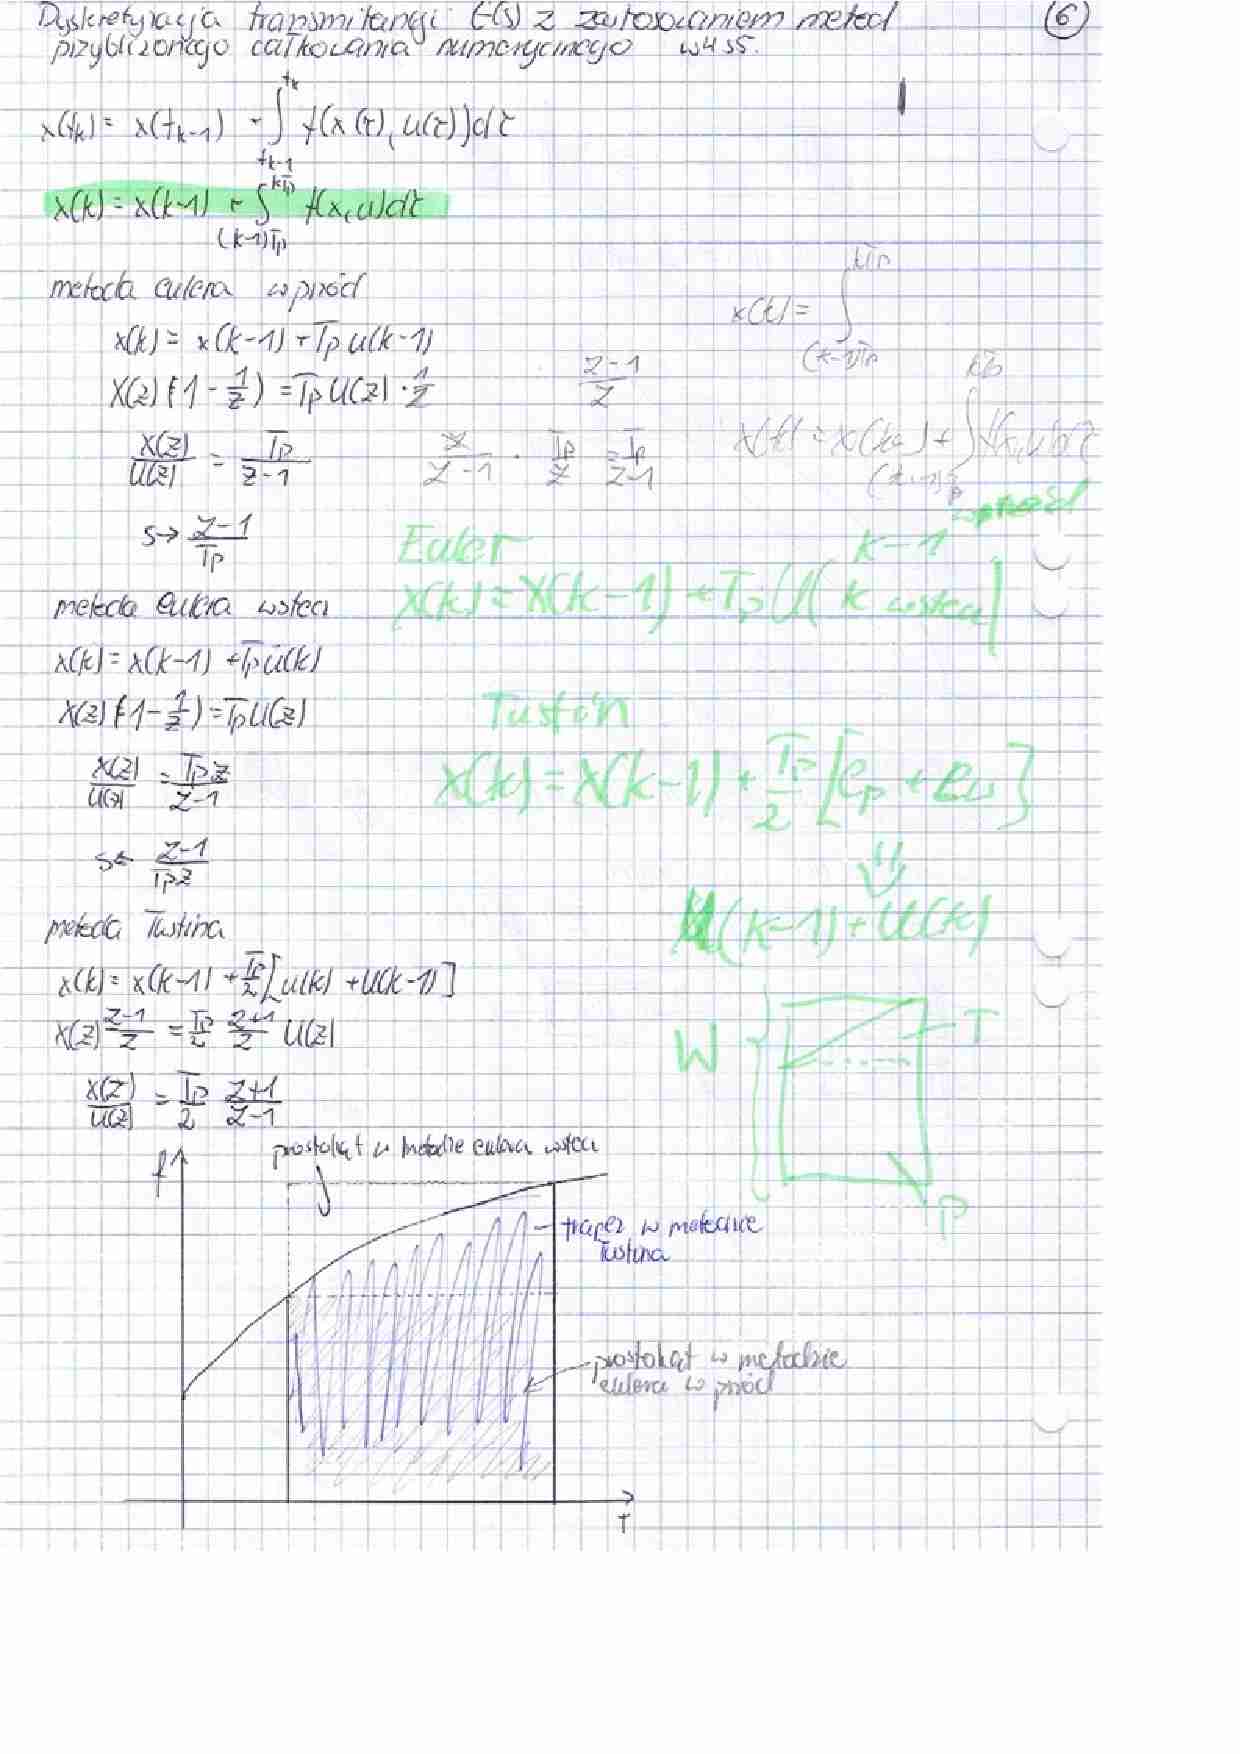 Dyskretyzacja transmitancji G(s) z zastosowaniem metod
przybliżonego całkowania numerycznego w4 s5.
6
x(tk) = x(tk-1) + ∫ f(x(τ), u(τ))dτ
tk
tk-1
x(k) = x(k-1) + ∫ f(x,u)dτ
kTp
(k-1)Tp
metoda eulera wprzód
x(k) = x(k-1) + Tp u(k-1)
X(z)(1 - 1/z) = Tp U(z) · 1/z
X(z)/U(z) = Tp/(z-1)
s → (z-1)/Tp
(z-1)/z
z/(z-1) · Tp/z = Tp/(z-1)
x(k) = ∫
kTp
(k-1)Tp
kTp
∫ f(x,u)dτ
Euler
wprzód
k-1
X(k) = X(k-1) + Tp U( k wstecz
metoda eulera wstecz
x(k) = x(k-1) + Tp u(k)
X(z)(1 - 1/z) = Tp U(z)
X(z)/U(z) = Tp z/(z-1)
s ← (z-1)/(Tp z)
Tustin
X(k) = X(k-1) + Tp/2 [ep + ew]
U(k-1) + U(k)
metoda Tustina
x(k) = x(k-1) + Tp/2 [u(k) + u(k-1)]
X(z) (z-1)/z = Tp/2 (z+1)/z U(z)
X(z)/U(z) = Tp/2 (z+1)/(z-1)
W
T
P
prostokąt w metodzie eulera wstecz
f
trapez w metodzie
Tustina
prostokąt w metodzie
eulera w przód
T